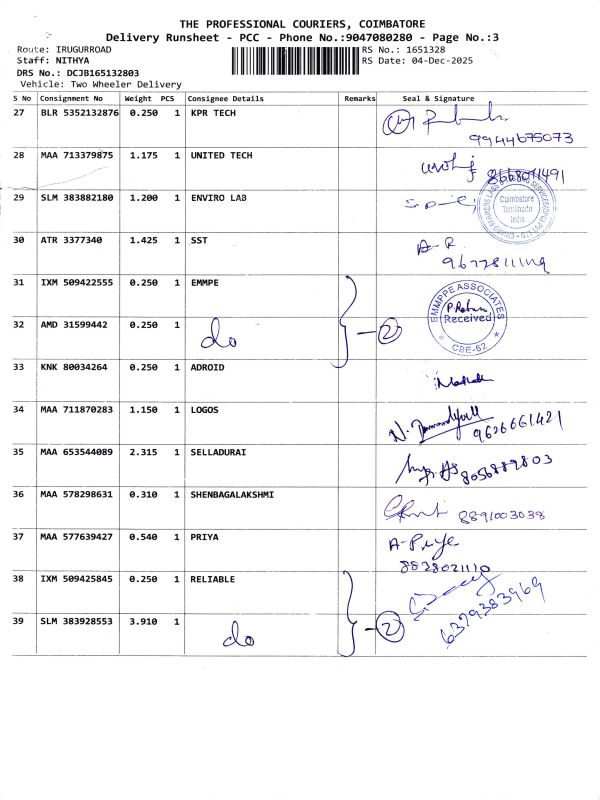 THE PROFESSIONAL COURIERS, COIMBATORE
Delivery Runsheet - PCC - Phone No.:9047080280 - Page No.:3
Route: IRUGURROAD RS No.: 1651328
Staff: NITHYA RS Date: 04-Dec-2025
DRS No.: DCJB165132803
Vehicle: Two Wheeler Delivery
S No Consignment No Weight PCS Consignee Details Remarks Seal & Signature
27 BLR 5352132876 0.250 1 KPR TECH
9944675073
28 MAA 713379875 1.175 1 UNITED TECH
29 SLM 383882180 1.200 1 ENVIRO LAB
Coimbatore
Tamilnadu
India
30 ATR 3377340 1.425 1 SST A-R
31 IXM 509422555 0.250 1 EMMPE
EMMPPE ASSOCIATES
Received
CBE-62
32 AMD 31599442 0.250 1 do 2
33 KNK 80034264 0.250 1 ADROID
34 MAA 711870283 1.150 1 LOGOS
9626661421
35 MAA 653544089 2.315 1 SELLADURAI
8056887803
36 MAA 578298631 0.310 1 SHENBAGALAKSHMI
8891003038
37 MAA 577639427 0.540 1 PRIYA A-Priya
8828021110
38 IXM 509425845 0.250 1 RELIABLE
6379383969
39 SLM 383928553 3.910 1 do 2